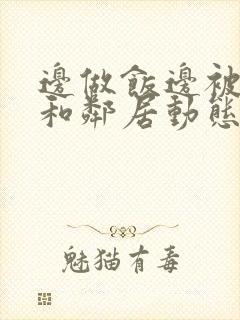 邊做飯邊被
和鄰居動態
魅猫有毒